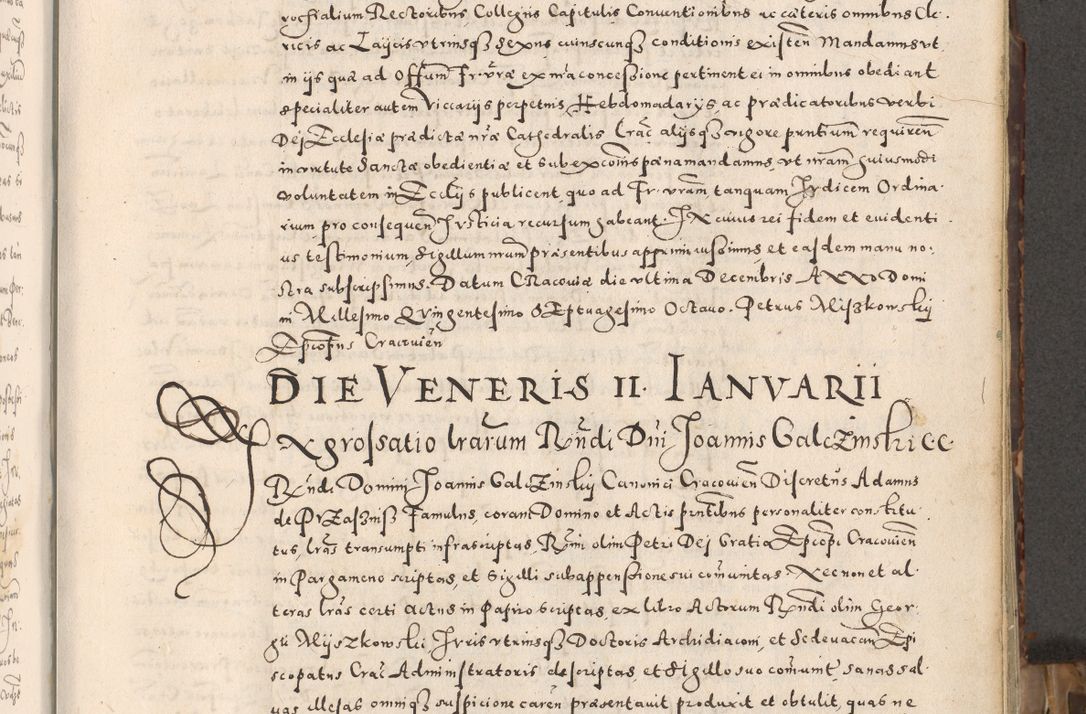 rochialium Rectoribus Collegiis Capitulis Conventionibus ac cæteris omnibus Cle-
ricis ac Laijcis vtriusqȝ sexus cuiuscunqȝ conditionis existeñ Mandamus vt
in ijs quæ ad Offũm Fr: vræ ex nrã concessione pertinent ei in omnibus obediant
specialiter autem Viccarijs perpetuis Hebdomadarijs ac prædicatoribus verbi
Dej Ecclesiæ prædictæ nræ Cathedralis Crac̃ alijsqȝ vigore pũtium requireñ
in virtute Sanctæ obedientiæ et sub ex cõis pæna mandamus, vt nram̃ huiusmodi
voluntatem in Ecclijs publicent, quo ad Fr: vram̃, tanquam Jvdicem Ordina-
rium pro consequeñ Jvsticia recursum habeant. In cuius rei fidem et euidenti-
us testimonium Sigillum nrum̃ præsentibus apprimi iussimus, et easdem manu no-
stra subscripsimus. Datum CRacouiæ die vltima Decembris Anno Domi
ni Millesimo Qvingentesimo SEptuagesimo Octauo. Petrus Miszkowskij
Epcopus Cracovieñ
DIE VENERIS II IANVARII
Ngrossatio lrarum Rñdi Dñi Joannis GalcZinski CC
Rñdi Domini Joannis GalcZinskij Canonici Cracovieñ Discretus Adamus
de PrZasznisz Famulus, coram Domino et Actis pñtibus personaliter constitu-
tus, lras transumpti infrascriptas, Rmi olim Petri Dej Gratia Epcopi Cracovieñ
in Pargameno scriptas, et Sigilli subappensione sui com̃unitas. Necnon et al-
teras lras certi Actus in Papiro scriptas, ex libro Actorum Rñdi olim Geor-
gii Mijszkowskii Jvris vtriusqȝ Doctoris Archidiaconi, et Sede vacan̄ Epi
scopatus Crac̃ Administratoris descriptas, et Sigillo suo com̃unit̃ sanas sal-
uas illesas omniqȝ suspicione careñ præsentauit produxit et obtulit, quas ne